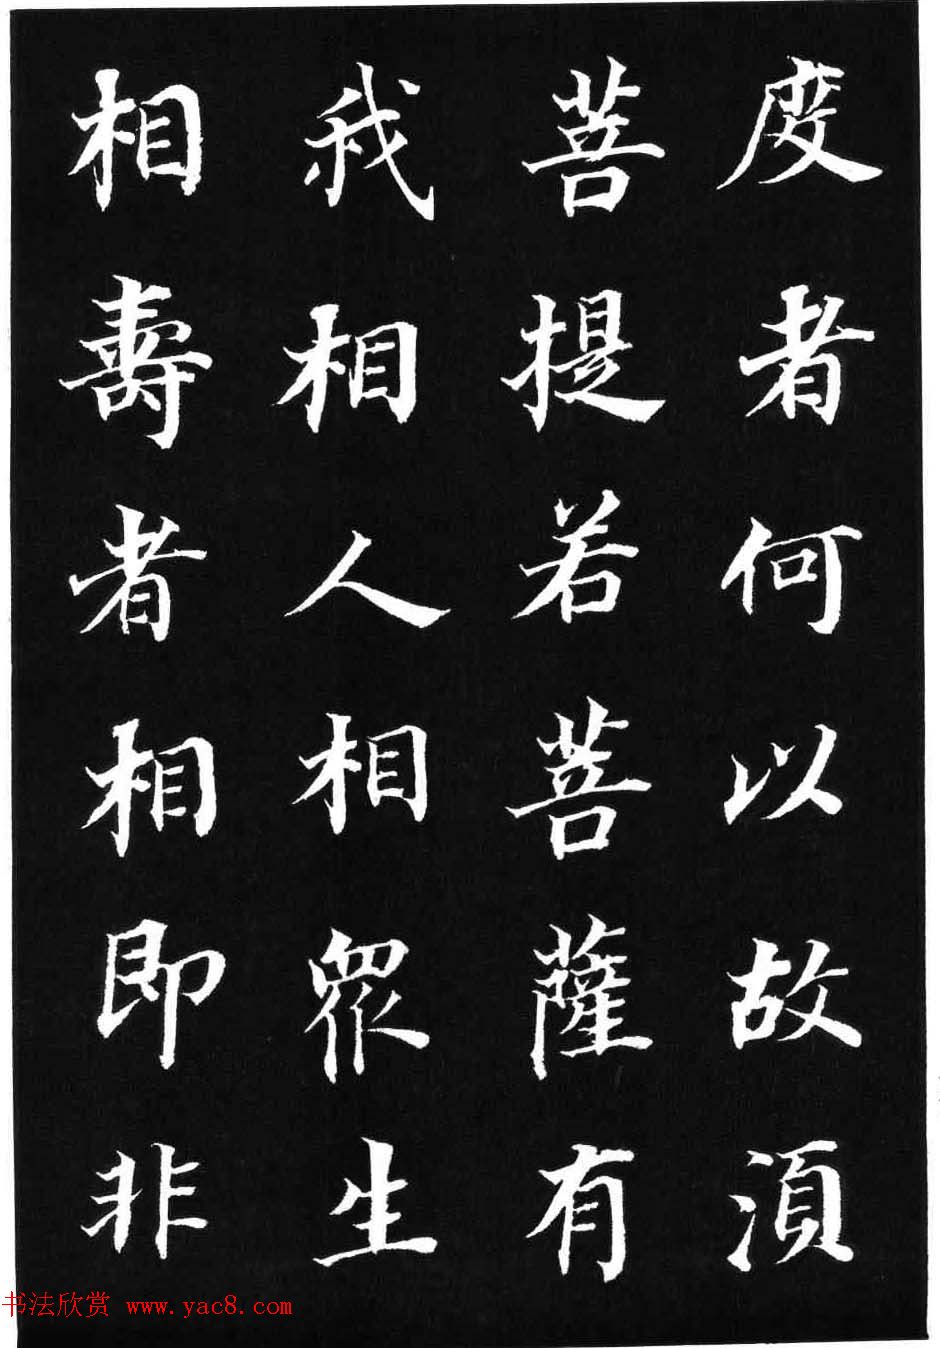 度者何以故須
菩提若菩薩有
我相人相眾生
相壽者相即非
书法欣赏 www.yac8.com